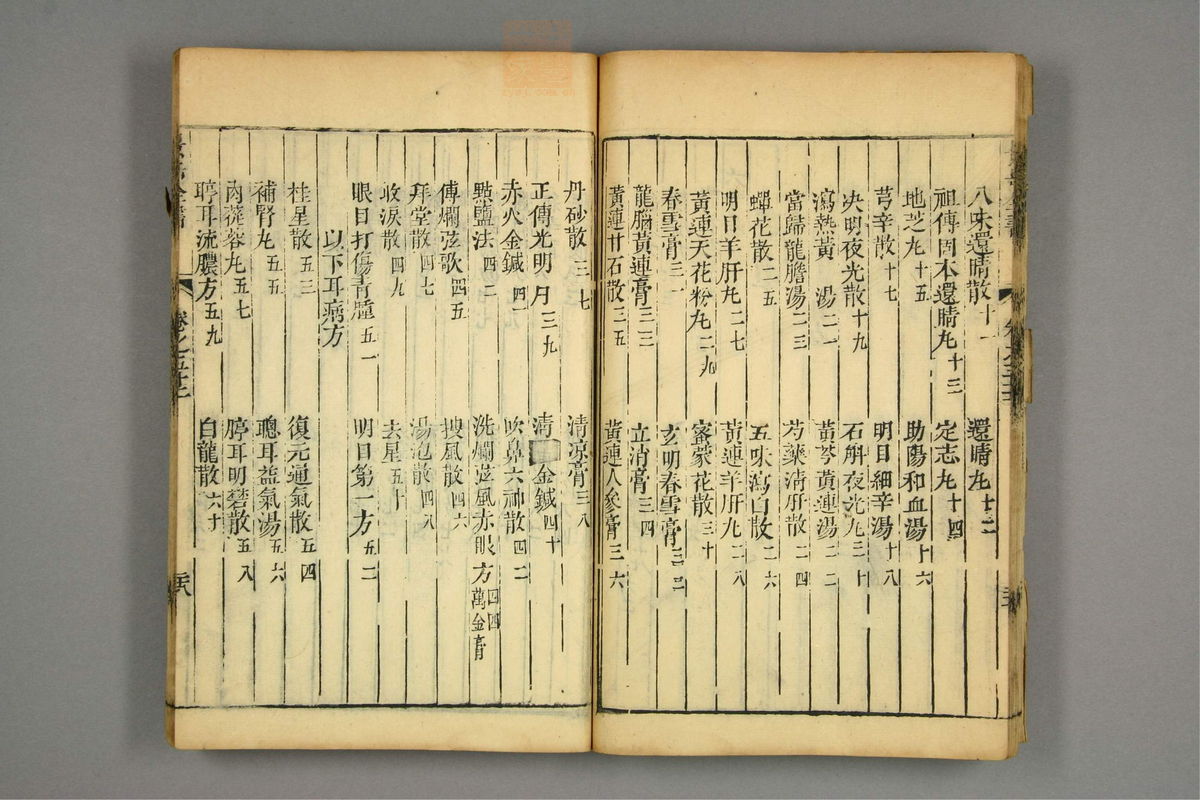 八味還睛散十一 還睛丸十二
祖傳固本還睛丸十三 定志丸十四
地芝丸十五 助陽和血湯十六
芎辛散十七 明目細辛湯十八
決明夜光散十九 石斛夜光丸二十
瀉熱黃 湯二一 黃芩黃連湯二二
當歸龍膽湯二三 芍藥清肝散二四
蟬花散二五 五味瀉白散二六
明目羊肝丸二七 黃連羊肝丸二八
黃連天花粉丸二九 蜜蒙花散三十
春雪膏三一 玄明春雪膏三二
龍腦黃連膏三三 立消膏三四
黃連甘石散三五 黃連人參膏三六
丹砂散三七 清涼膏三八
正傳光明月三九 清 金鍼四十
赤火金鍼四一 吹鼻六神散四二
點鹽法四二 洗爛弦風赤眼方萬金膏四四
傅爛弦歌四五 搜風散四六
拜堂散四七 湯泡散四八
收淚散四九 去星五十
眼目打傷青腫五一 明目第一方五二
以下耳病方
桂星散五三 復元通氣散五四
補腎丸五五 聰耳益氣湯五六
肉蓯蓉丸五七 聤耳明礬散五八
聤耳流膿方五九 白龍散六十
全書 卷之五十三 三八